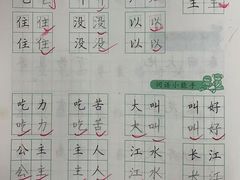 主 主
住 住 没 没 以 以
住 住 没 没 以 以
词语小能手
吃力 吃苦 大叫 叫好
吃力 吃苦 大叫 叫好
公主 主人 江水 长江
公主 主人 江水 长江